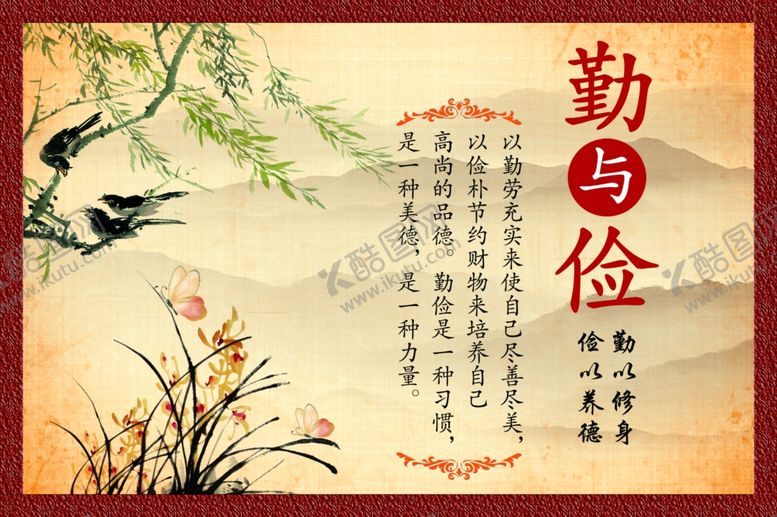 勤与俭
勤以修身
俭以养德
以勤劳充实来使自己尽善尽美，
以俭朴节约财物来培养自己
高尚的品德。勤俭是一种习惯，
是一种美德，是一种力量。
酷图网
www.ikutu.com
酷图网
www.ikutu.com
酷图网
www.ikutu.com